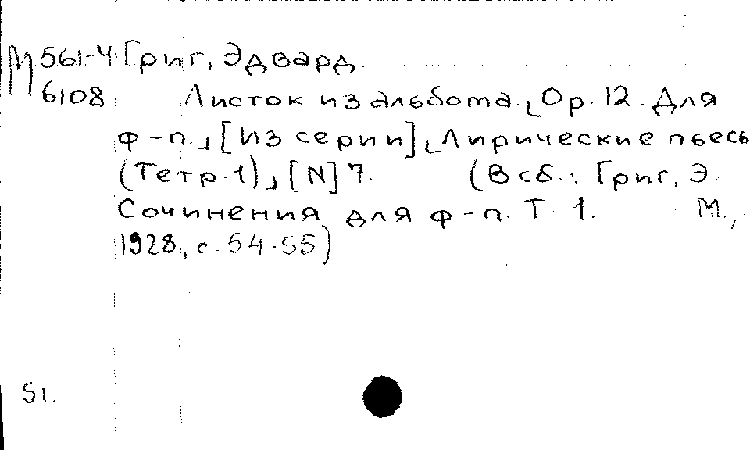 М 561-4 Григ, Эдвард.
6108 Листок из альбома. Ор. 12. Для
ф-п. [Из серии] Лирические пьесы
(Тетр. 1), [N] 7. (В сб.: Григ, Э.
Сочинения для ф-п. Т. 1. М.,
1928, с. 54-55)
51.